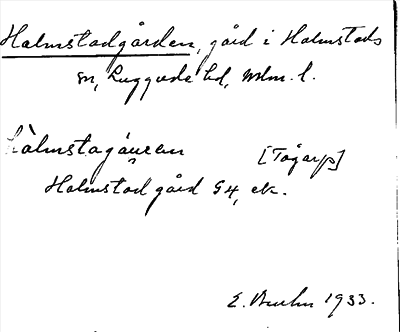 Halmstadgården, gård i Halmstads
sn, Luggude hd, Mlm. l.
hàlmstagåuren [Tågarp]
Halmstad gård 54, ek.
E. Bruhn 1933.